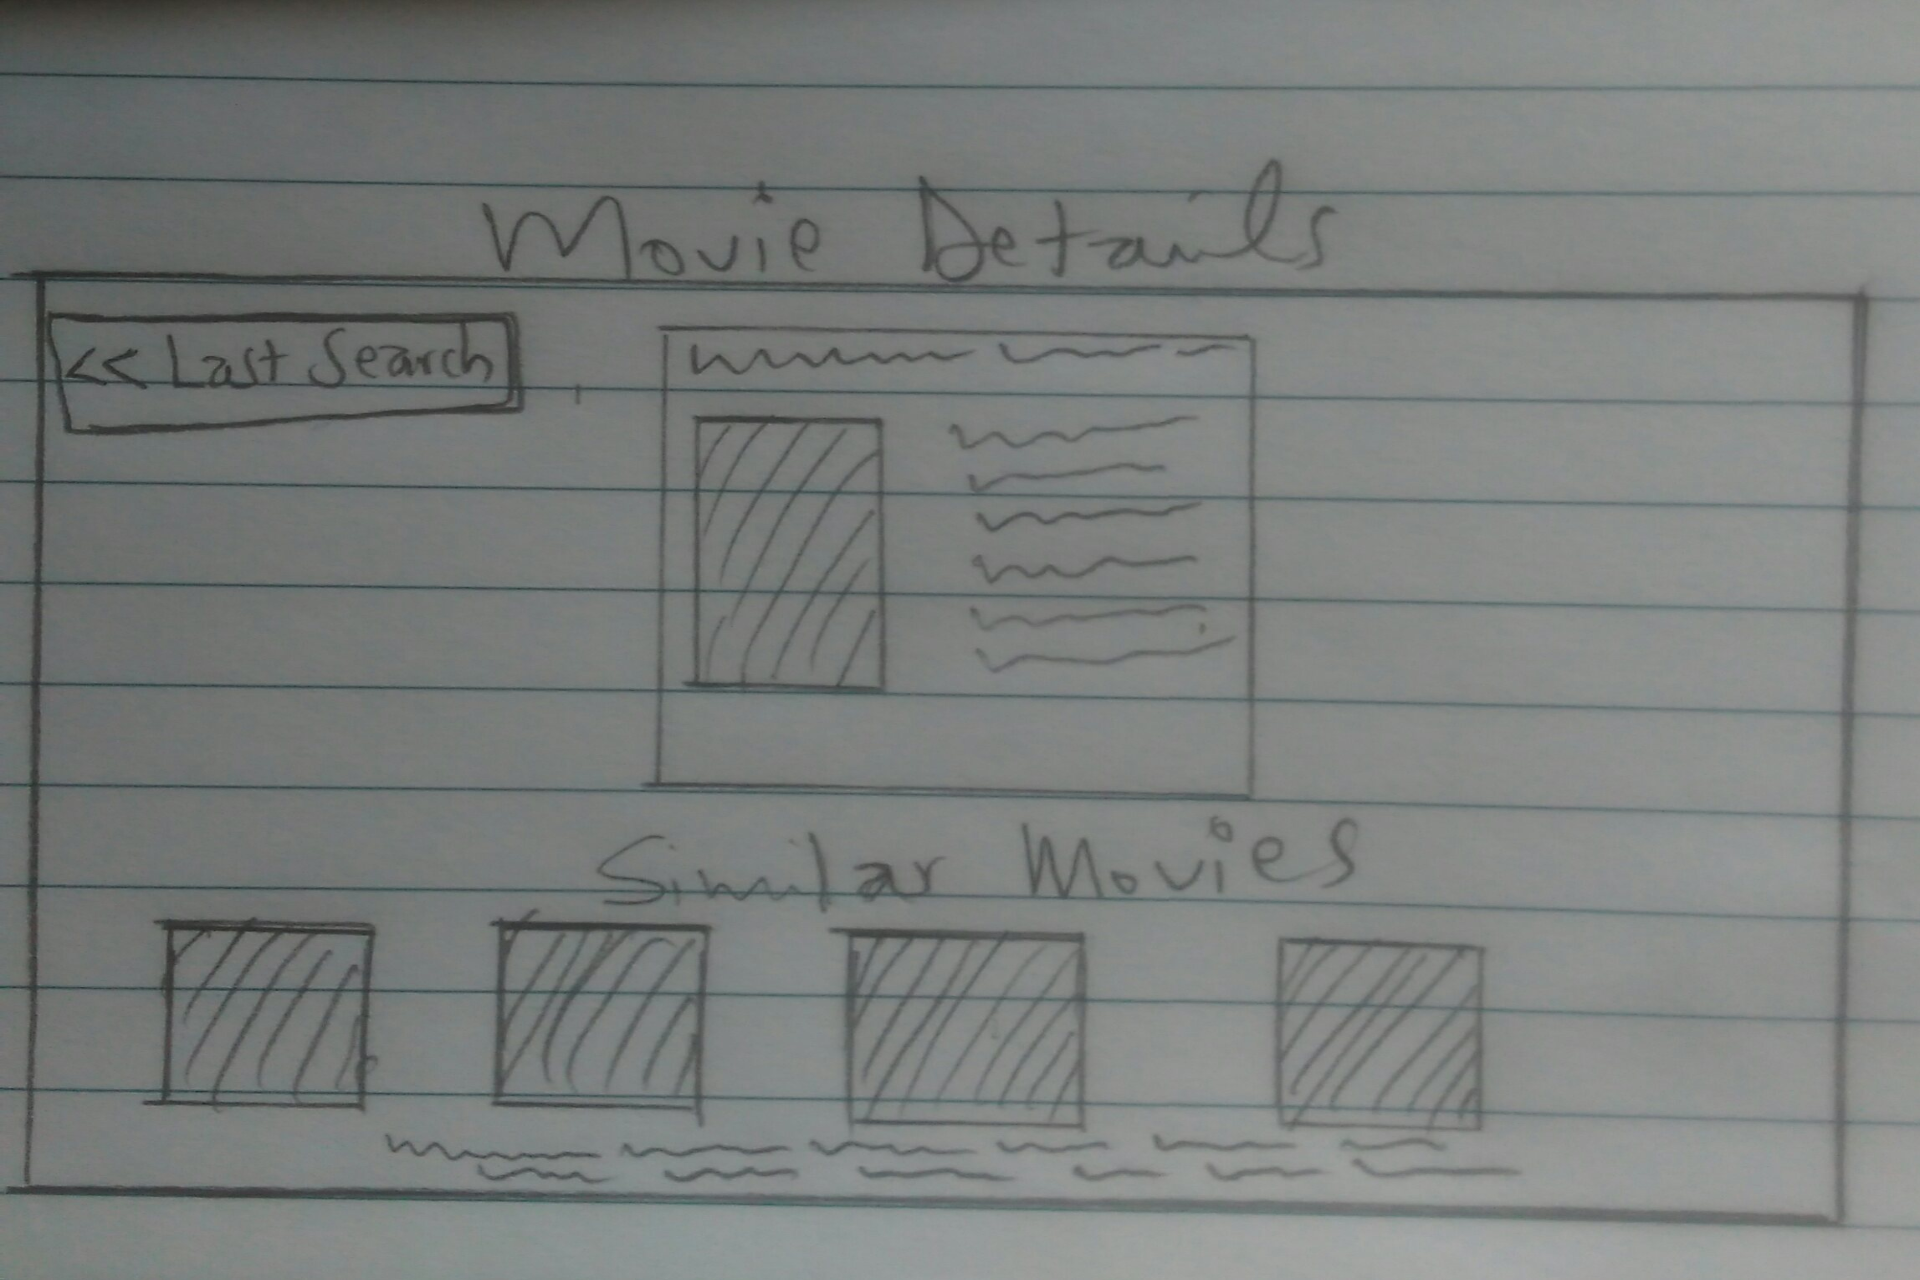 Movie Details
<< Last Search
Similar Movies